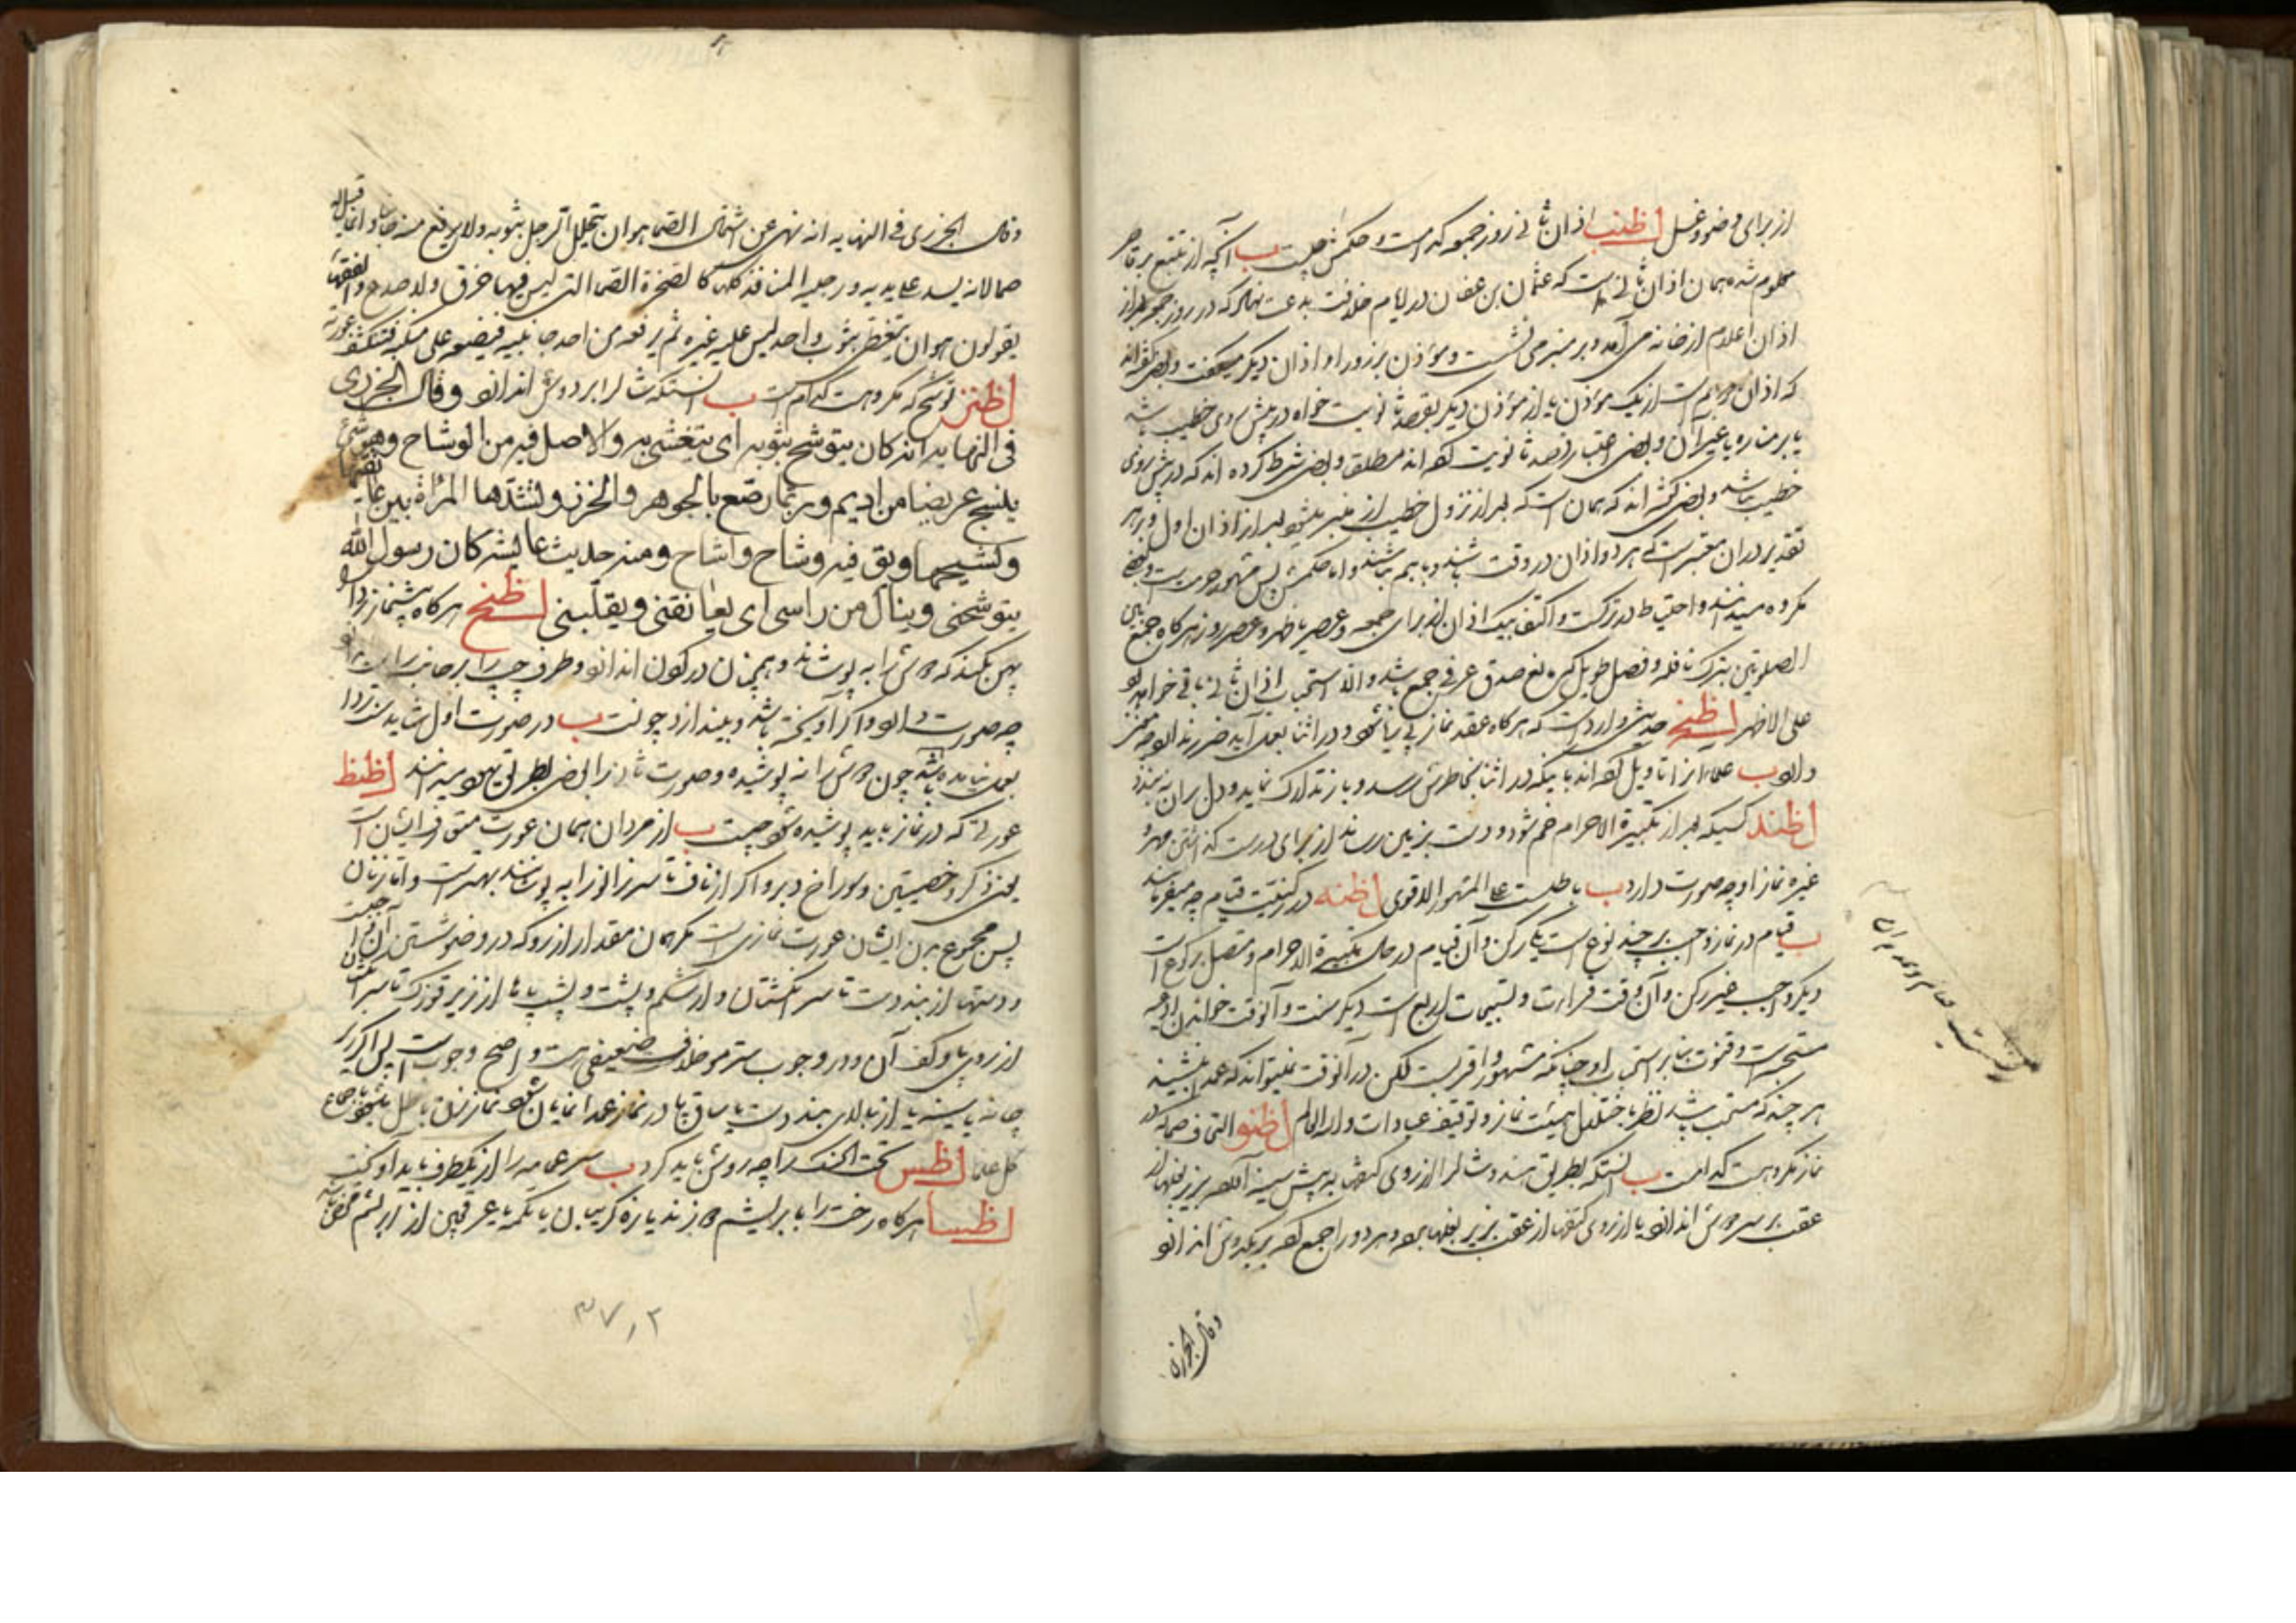 از برای وضو و غسل اظنب اذان ثانی روز جمعه کدامست و حکمش چیست ب آنچه از تتبع بر قاصر
معلوم شده همان اذان ثانی است که عثمان بن عفان در ایام خلافت بدعت نهاد که در روز جمعه بعد از
اذان اعلام از خانه می آمد و بر منبر می نشست و مؤذن بر زوراء اذان دیگر میگفت و بعضی گفته اند
که اذان دویم است از یک مؤذن یا از مؤذن دیگر بقصد ثانویت خواه در پیش روی خطیب باشد
یا بر مناره یا غیر آن و بعضی اعتبار قصد ثانویت کرده اند مطلق و بعضی شرط کرده اند که در پیش روی
خطیب باشد و بعضی گفته اند که همان است که بعد از نزول خطیب از منبر میشود بعد از اذان اول و بر هر
تقدیر در آن معتبر است که هر دو اذان در وقت باشند و با هم نباشند و اما حکمش پس مشهور حرمت است و بعضی
مکروه میدانند و احتیاط در ترک است و اکتفا بیک اذان از برای جمعه و عصر یا ظهر و عصر روز هر گاه جمع بین
الصلوتین بترک نافله و فصل طویل که مانع صدق عرفی جمع باشد و الا استحباب اذان ثانی باقی خواهد بود
علی الاظهر اظنج حدیثی وارد است که هر گاه عقد نماز پی ریا شود و در اثنا بعمل آید ضرر ندارد چه معنی
دارد ب علماء از آن تاویل کرده اند باینکه در اثنا بخاطرش رسد و باز تدارک نماید و دل بر آن نه بندد
اظند کسیکه بعد از تکبیرة الاحرام خم شود و دست بزمین رساند از برای درست گذاشتن مهر و
غیره نماز او چه صورت دارد ب باطلست علی المشهور الاقوی اظنه در کیفیت قیام چه میفرمایند
ب قیام در نماز واجب بر چند نوع است یکی رکن و آن قیام در حال تکبیرة الاحرام و متصل برکوع است
دیگر واجب غیر رکن و آن وقت قرائت و تسبیحات اربع است دیگر سنت و آن وقت خواندن ادعیه
مستحبه است و قنوت بنا بر استحباب او چنانکه مشهور و اقرب است لکن در آن وقت نمیتواند که عمدا بنشیند
هر چند که مستحب باشد نظر باختلال هیئت نماز و توقیف عبادات والله العالم اظنو التحاف صماء که در
نماز مکروهست کدامست ب آنستکه بطریق هندو شال را از روی کتف به پیش سینه آورده بزیر بغلها از
عقب بر سر دوش اندازد یا از روی کتفها از عقب بزیر بغلها برده و هر دو را جمع کرده بر یکدوش اندازد
وقال الجزری
وقال الجزری فی النهایه انه نهی عن اشتمال الصماء هو ان یتجلل الرجل بثوبه ولا یرفع منه جانبا وانما قیل له
صماء لانه یسد علی یدیه ورجلیه المنافذ کلها کالصخرة الصماء التی لیس فیها خرق ولا صدع والفقهاء
یقولون هو ان یتغطی بثوب واحد لیس علیه غیره ثم یرفعه من احد جانبیه فیضعه علی منکبه فتنکشف عورته
اظنز توشح که مکروهست کدام است ب آنستکه شال را بر دوش اندازد وقال الجزری
فی النهایه انه کان یتوشح بثوبه ای یتغشی به والاصل فیه من الوشاح وهو شیء
ینسج عریضا من ادیم وربما رصع بالجوهر والخرز وتشدها المرأة بین عاتقها
وکشیحها ویق فیه وشاح واشاح ومنه حدیث عایشه کان رسول الله
یتوشحنی وینال من راسی ای یعانقنی ویقلبنی اظنح هر گاه پیشنماز ردا را
پهن بکند که دوش را به پوشاند و همچنان در گون اندازد و طرف چپ را بر جانب راست
چه صورت دارد و اگر آویخته باشد و بیندازد چونست ب در صورت اول شاید سنت ردا
بعمل نیامده باشد چون دوش را نه پوشیده و صورت ثانی را بعضی بطریق یهود میدانند اظنط
عورتی که در نماز باید پوشیده شود چیست ب از مردان همان عورت متعارف ایشان است
یعنی ذکر و خصیتین و سوراخ دبر و اگر از ناف تا سر زانو را به پوشانند بهتر است و اما زنان
پس مجموع بدن ایشان عورت نمازی است مگر همان مقدار از رو که در وضو شستن آن واجبست
و دستها از بند دست تا سر انگشتان و از شکم و پشت و پشت پاها از زیر قوزک تا سر انگشتان
از روی پا و کف آن و در وجوب ستر مو خلاف ضعیفی هست و اصح وجوب است پس اگر زیر
چانه یا سینه یا از بالای بند دست یا ساق پا در نماز عمدا نمایان شود نماز زن باطل میشود باجماع
کل علما اظس تحت الحنک را چه روش باید کرد ب سر عمامه را از یکطرف باید آویخت
اظسا هر گاه رخت را با بریشم دوزند یا زه گریبان یا تکمه یا عرقچین از ابریشم محض باشد
۳۷۱۲